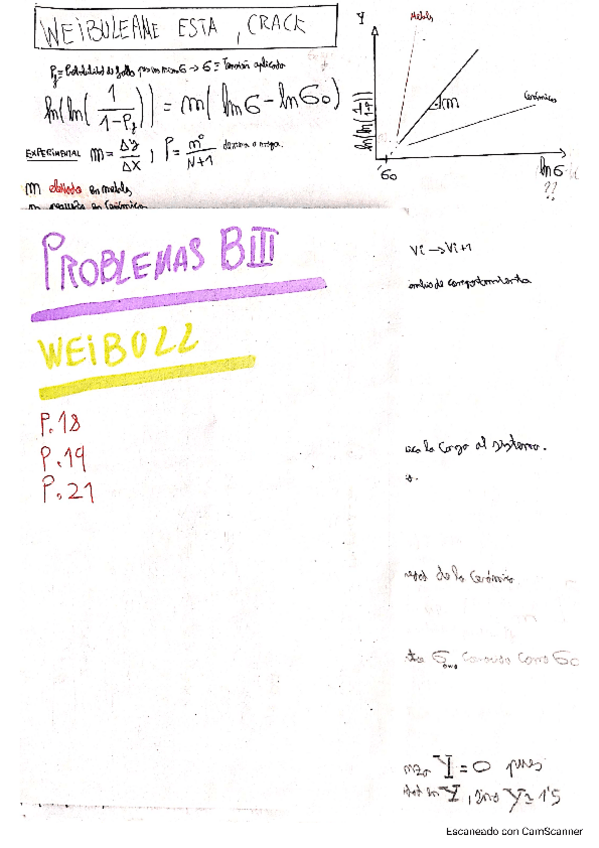 WEIBULEAME ESTA, CRACK
Pf = Probabilidad de fallo para un mismo σ → σ = Tensión aplicada
ln(ln(1/(1-Pf))) = m(lnσ - lnσo)
EXPERIMENTAL m = Δy/Δx ; P = nº/(N+1) de menor a mayor.
m elevada en metales
m pequeña en Cerámicos
Y
Metales
Cerámicos
m
ln(ln(1/(1-Pf)))
σo
lnσ
??
PROBLEMAS BIII
WEIBULL
P.18
P.19
P.21
Vi → Vi+1
de comportamiento
la carga al sistema.
de la Cerámica
conocido como σo
Y = 0 pues
Y, sino Y≈1'5
Escaneado con CamScanner